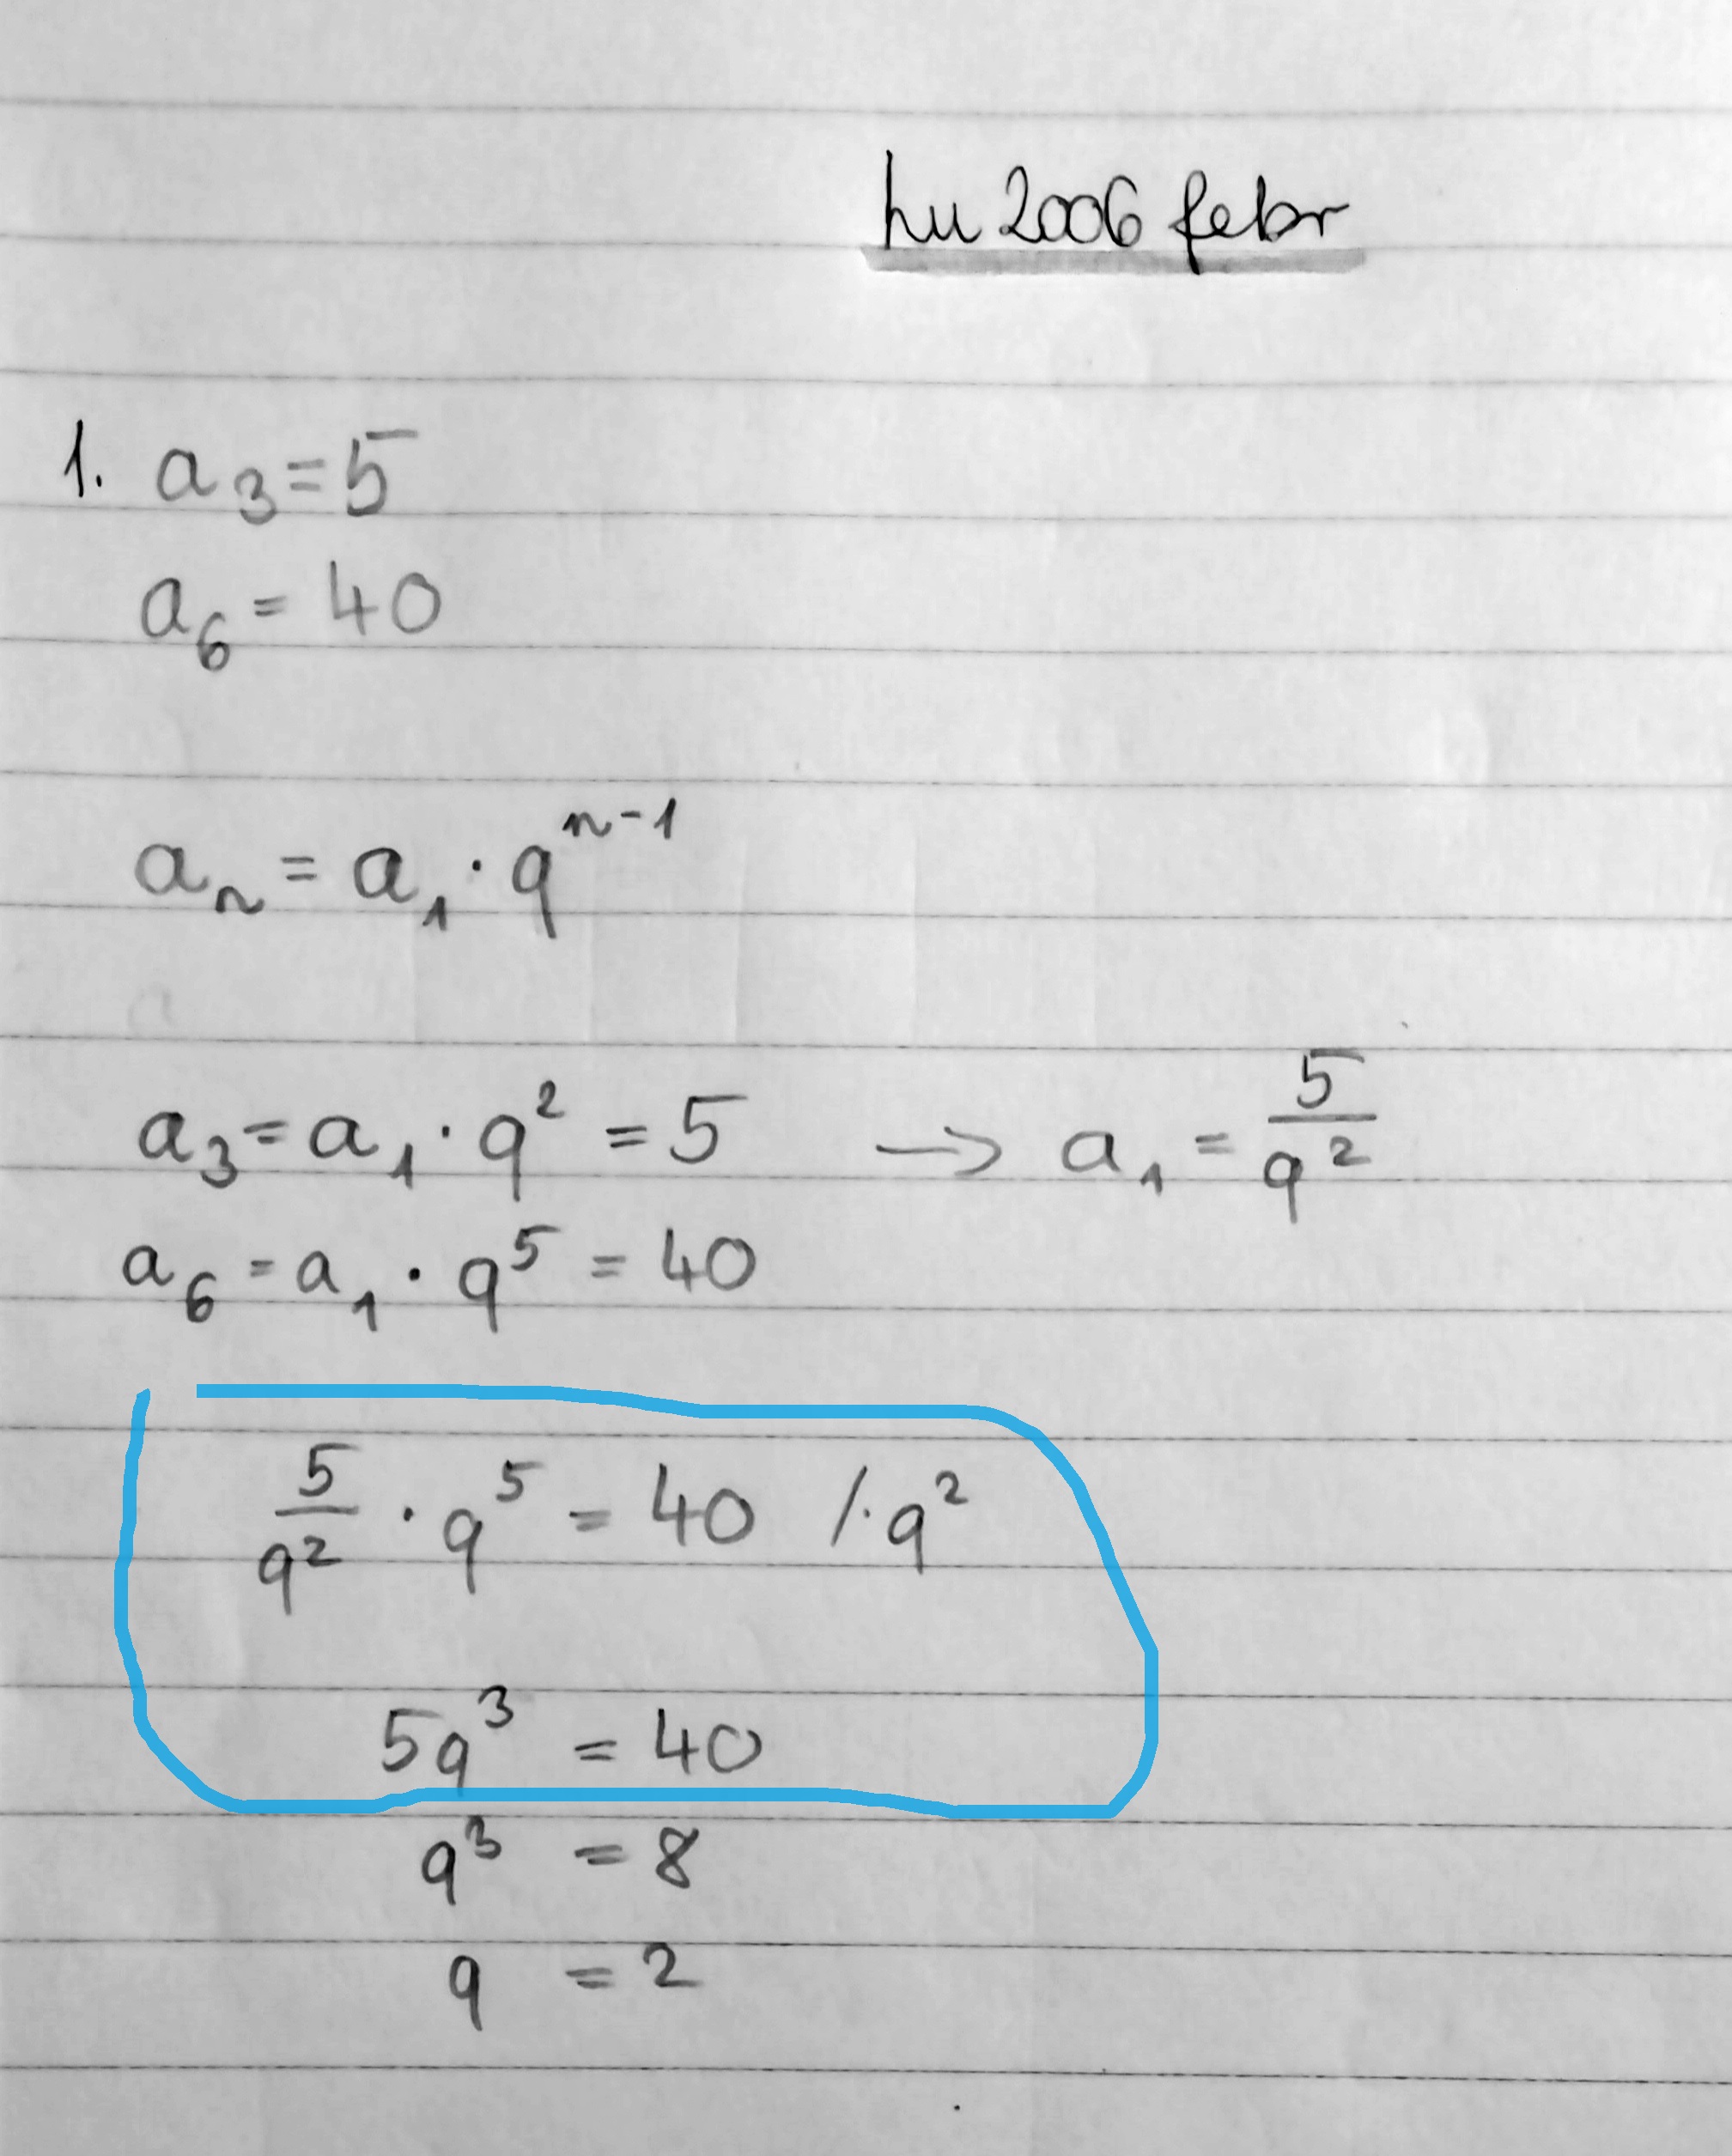 hu 2006 febr
1. a₃ = 5
a₆ = 40
aₙ = a₁ · qⁿ⁻¹
a₃ = a₁ · q² = 5 → a₁ = 5/q²
a₆ = a₁ · q⁵ = 40
5/q² · q⁵ = 40 /· q²
5q³ = 40
q³ = 8
q = 2